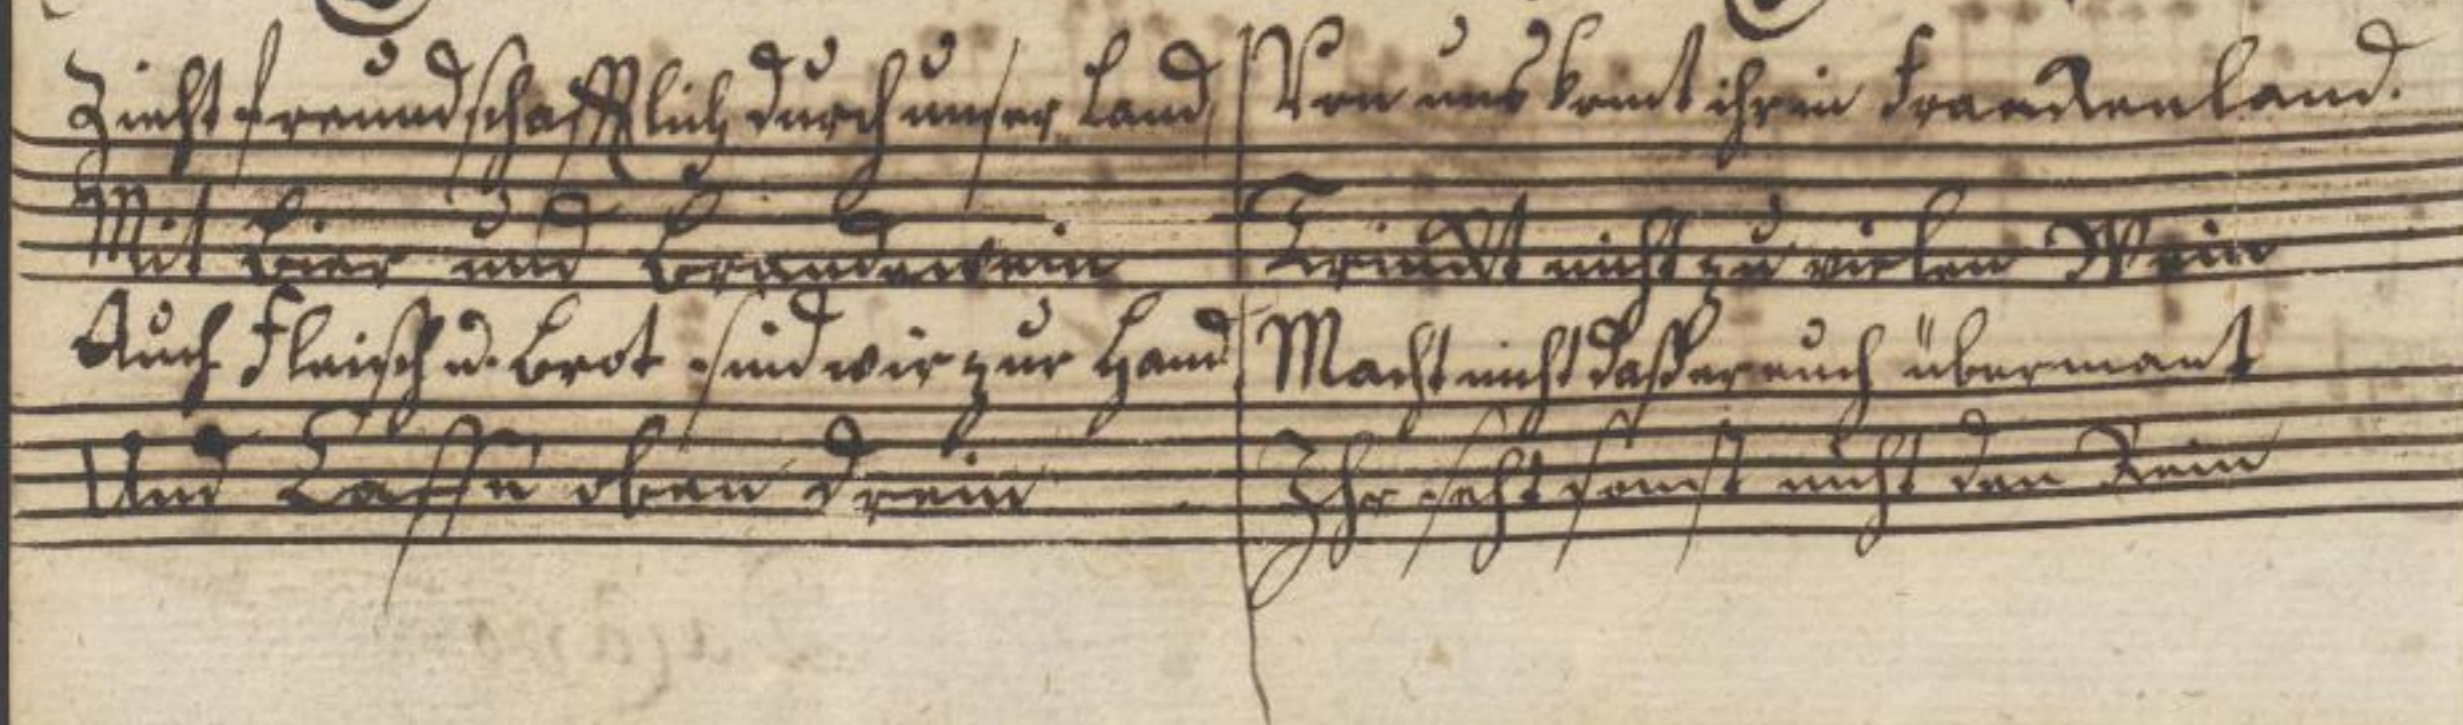 Zieht freundschafftlich durch unser Land
Mit Bier und Brandewein
Auch Fleisch u. Brot sind wir zur Hand
Und Caffe oben drein
Von uns komt ihr in Franckenland.
Trinckt nicht zu vielen Wein
Macht nicht daß er euch übermant
Ihr seht sonst nicht den Rein